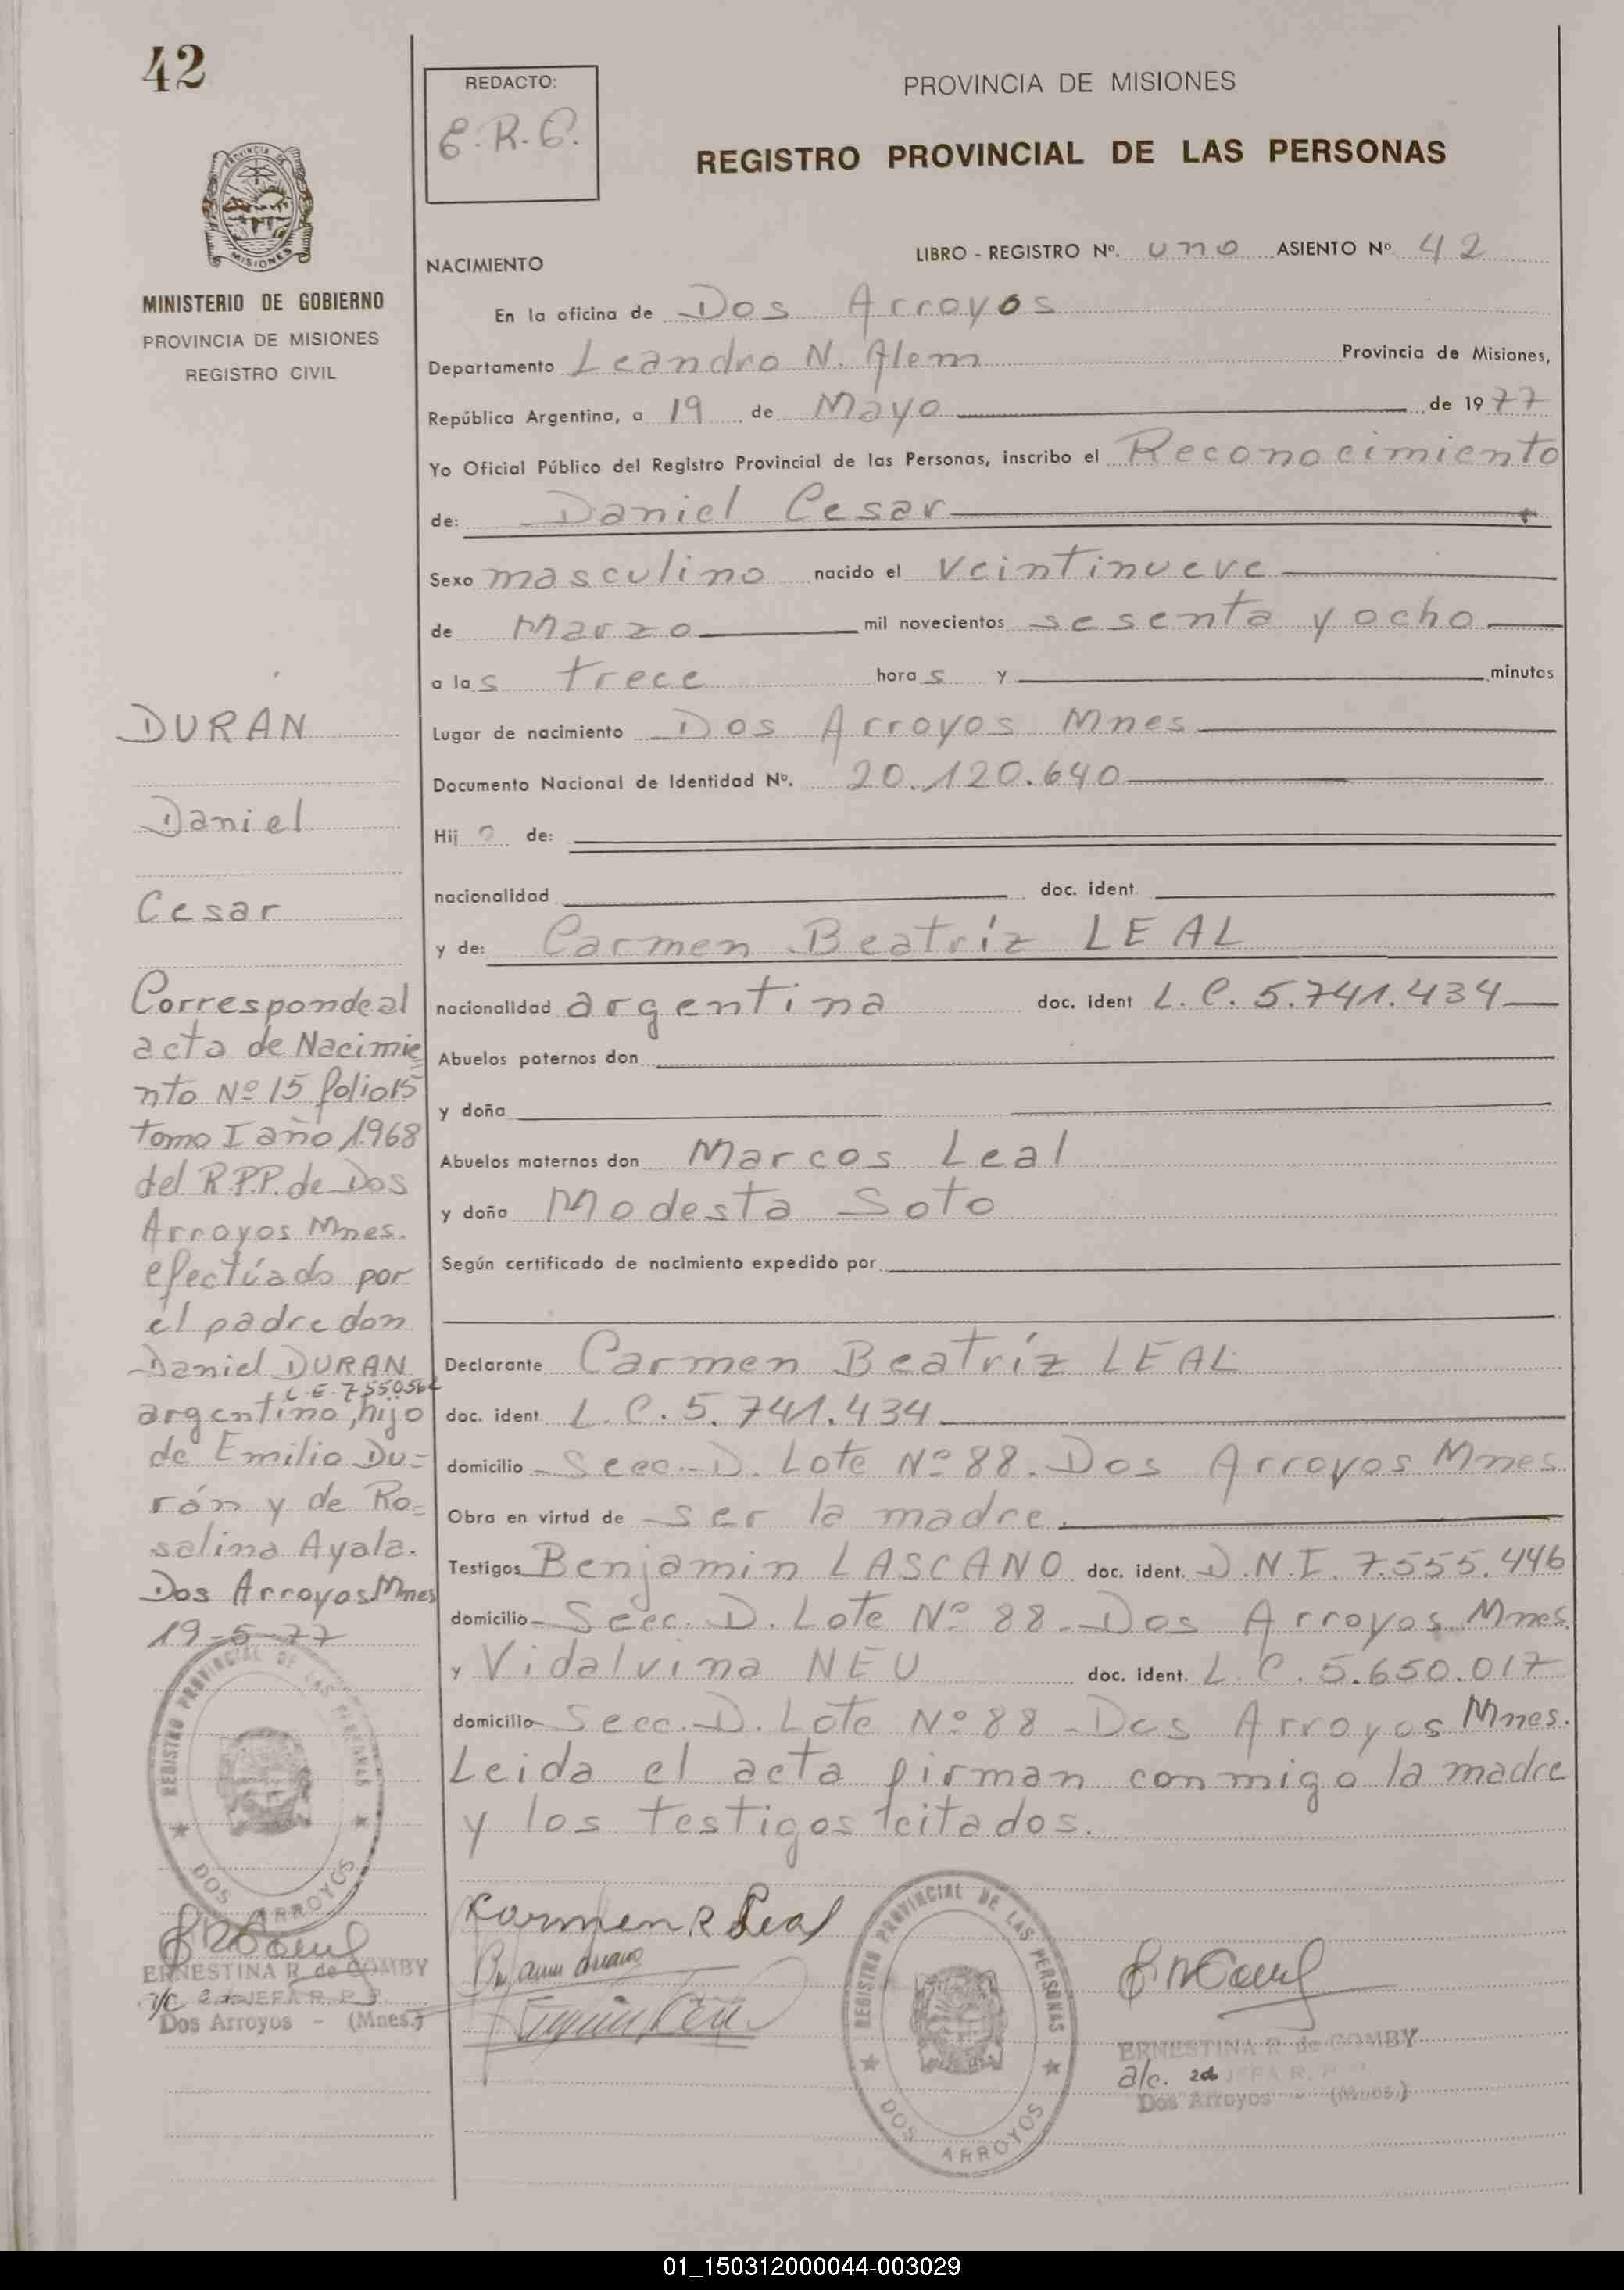 42
REDACTO:
E.R.G.
PROVINCIA DE MISIONES
REGISTRO PROVINCIAL DE LAS PERSONAS
PROVINCIA DE
MISIONES
MINISTERIO DE GOBIERNO
PROVINCIA DE MISIONES
REGISTRO CIVIL
NACIMIENTO
LIBRO - REGISTRO Nº. uno ASIENTO Nº 42
En la oficina de Dos Arroyos
Departamento Leandro N. Alem Provincia de Misiones,
República Argentina, a 19 de Mayo de 1977
Yo Oficial Público del Registro Provincial de las Personas, inscribo el Reconocimiento
de: Daniel Cesar
Sexo masculino nacido el veintinueve
de Marzo mil novecientos sesenta y ocho
a las trece horas y minutos
Lugar de nacimiento Dos Arroyos Mnes
Documento Nacional de Identidad Nº. 20.120.640
Hijo de:
nacionalidad doc. ident.
y de: Carmen Beatríz LEAL
nacionalidad argentina doc. ident L.C. 5.741.434
Abuelos paternos don
y doña
Abuelos maternos don Marcos Leal
y doña Modesta Soto
Según certificado de nacimiento expedido por
Declarante Carmen Beatríz LEAL
doc. ident L.C. 5.741.434
domicilio Secc. D. Lote Nº 88. Dos Arroyos Mnes
Obra en virtud de ser la madre.
Testigos Benjamin LASCANO doc. ident. D.N.I. 7.555.446
domicilio Secc. D. Lote Nº 88. Dos Arroyos Mnes.
y Vidalvina NEU doc. ident. L.C. 5.650.017
domicilio Secc. D. Lote Nº 88 - Dos Arroyos Mnes.
Leida el acta firman conmigo la madre
y los testigos citados.
DURAN
Daniel
Cesar
Corresponde al
acta de Nacimie
nto Nº 15 folio 15
tomo I año 1968
del R.P.P. de Dos
Arroyos Mnes.
efectúado por
el padre don
Daniel DURAN
L.E. 7550562
argentino, hijo
de Emilio Du=
rán y de Ro=
salina Ayala.
Dos Arroyos Mnes
19-5-77
REGISTRO PROVINCIAL DE LAS PERSONAS
DOS ARROYOS
ERNESTINA R. de COMBY
JEFA R. P. P.
Dos Arroyos - (Mnes.)
Karmen R Leal
REGISTRO PROVINCIAL DE LAS PERSONAS
DOS ARROYOS
ERNESTINA R. de COMBY
a/c. JEFA R. P.
Dos Arroyos - (Mnes.)
01_150312000044-003029